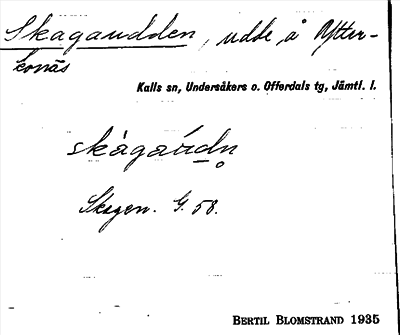 Skagaudden, udde å Ytter-
konäs
Kalls sn, Undersåkers o. Offerdals tg, Jämtl. l.
skàgaúdn̥
Skagen. G. 58.
BERTIL BLOMSTRAND 1935